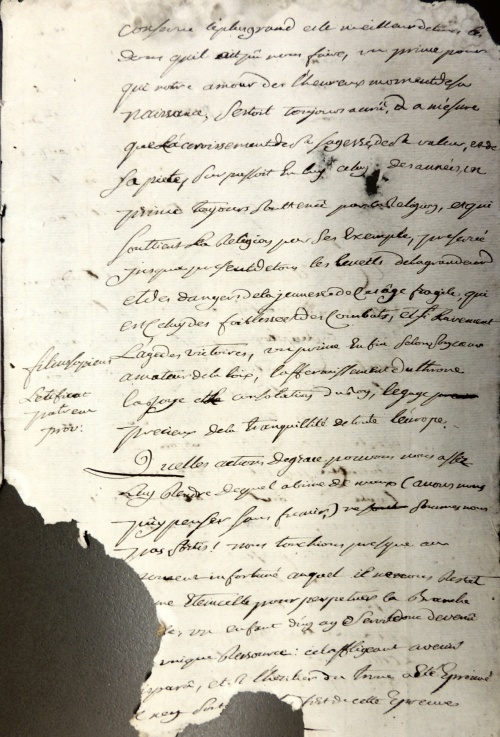 conserve le plus grand et le meilleur de tous les
dons qu'il ait pû nous faire, un prince pour
qui notre amour des l'heureux moment de sa
naissance, s'estoit toujours acrû, a mesure
que l'accroissement de sa sagesse, de sa valeur, et de
sa pieté, surpassoit en luy celuy des années, un
prince toujours soutenu par la Religion, et qui
soutient la Religion par ses exemples, preservé
jusqu'a present de tous les ecueils de la grandeur
et des dangers de la jeunesse de cet age fragile qui
est celuy des foiblesses et des combats, et si rarement
l'age des victoires, un prince enfin selon
amateur de la paix, l'affermissement du throne
la consolation du Roy, le gage
precieux de la tranquillité de toute l'europe.
filius sapiens
laetificat
patrem
prov:
Quelles actions de grace pouvons nous assez
luy rendre de quel abime de maux (a nous nous
puy penser sans fremir) ne sommes nous
pas sortis! nous touchions presque au
moment infortuné auquel il ne nous restoit
une etincelle pour perpetuer la branche
un enfant
unique ressource: cet affligeant avenir
disparû, et l'heritier du trone a été eprouvé
de cette epreuve